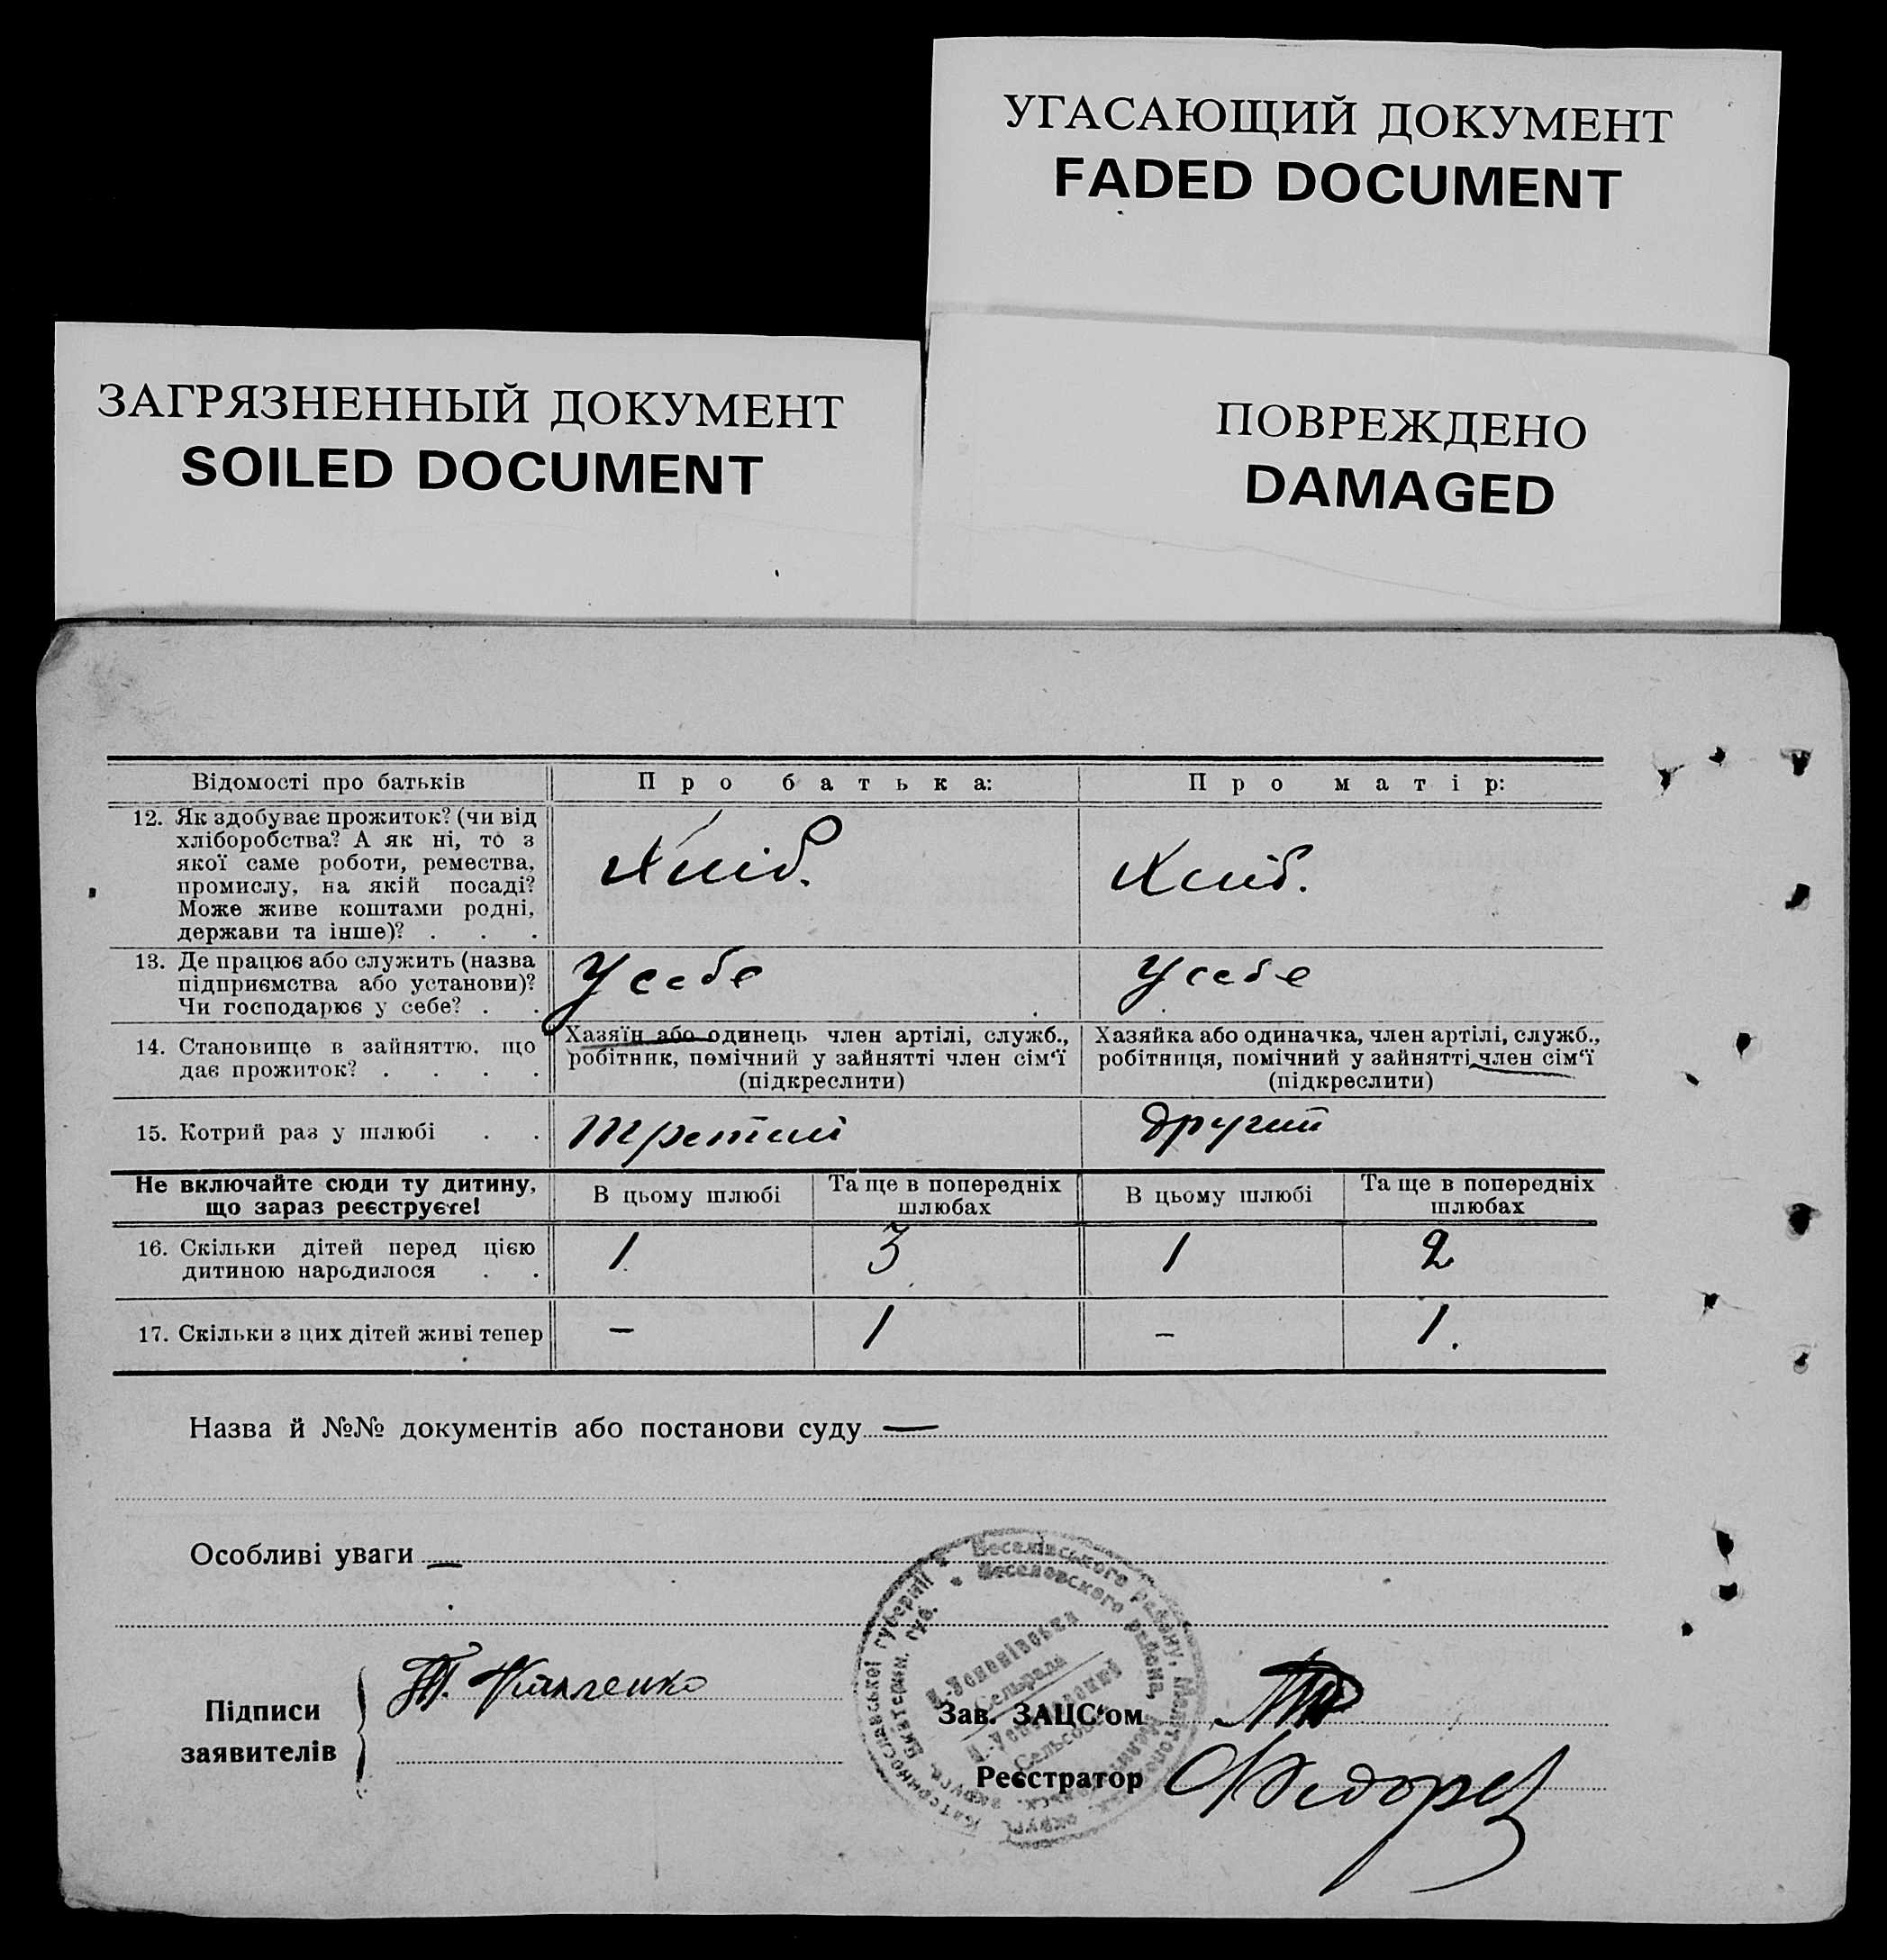 УГАСАЮЩИЙ ДОКУМЕНТ
FADED DOCUMENT
ЗАГРЯЗНЕННЫЙ ДОКУМЕНТ
SOILED DOCUMENT
ПОВРЕЖДЕНО
DAMAGED
Відомості про батьків
Про батька:
Про матір:
12. Як здобуває прожиток? (чи від
хліборобства? А як ні, то з
якої саме роботи, ремества,
промислу, на якій посаді?
Може живе коштами родні,
держави та інше)? . . .
Хліб.
Хліб.
13. Де працює або служить (назва
підприємства або установи)?
Чи господарює у себе? . .
У себе
У себе
14. Становище в зайняттю, що
дає прожиток? . . . .
Хазяїн або одинець член артілі, служб.,
робітник, помічний у зайнятті член сім‘ї
(підкреслити)
Хазяйка або одиначка, член артілі, служб.,
робітниця, помічний у зайнятті член сім‘ї
(підкреслити)
15. Котрий раз у шлюбі . .
третий
другий
Не включайте сюди ту дитину,
що зараз реєструєте!
В цьому шлюбі
Та ще в попередніх
шлюбах
В цьому шлюбі
Та ще в попередніх
шлюбах
16. Скільки дітей перед цією
дитиною народилося . .
1
3
1
2
17. Скільки з цих дітей живі тепер
–
1
–
1.
Назва й №№ документів або постанови суду —
Особливі уваги —
Підписи
заявителів
Катеринославської губернії * Веселівського району,
Веселовского района,
Сельрада
Зав. ЗАЦС‘ом
Реєстратор